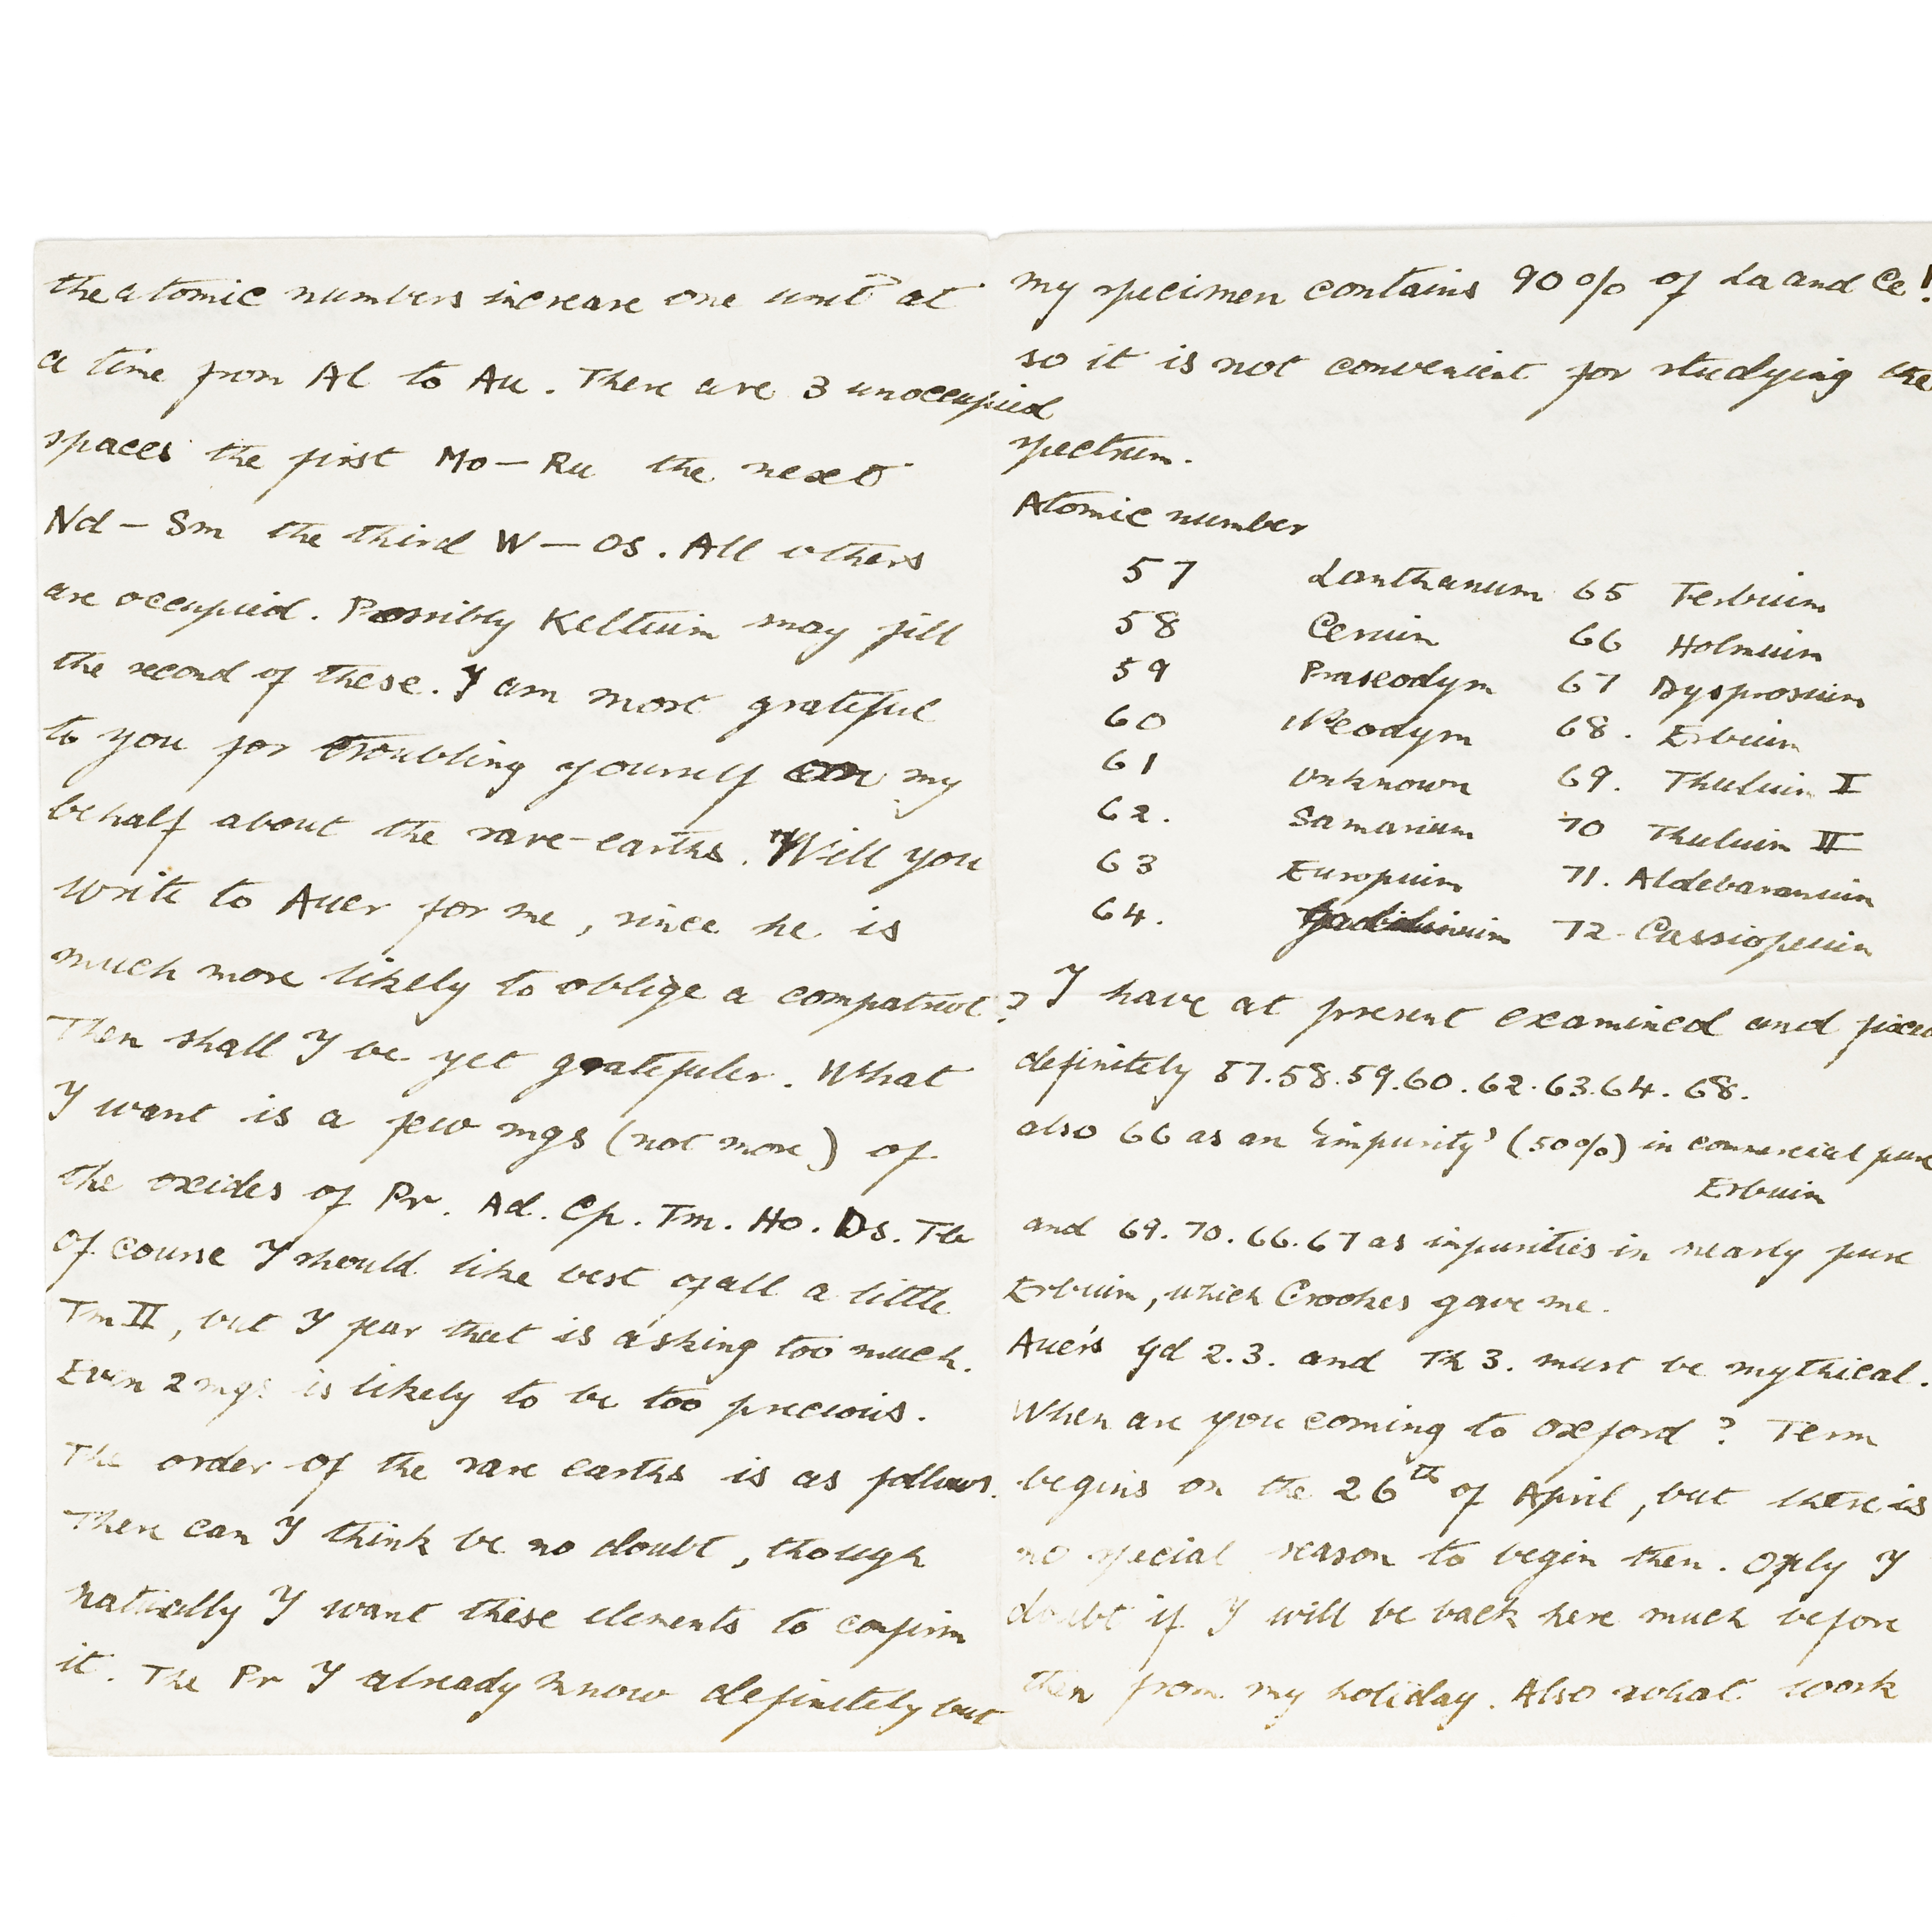 the atomic numbers increase one unit at
a time from Al to Au. There are 3 unoccupied
spaces the first Mo – Ru the next
Nd – Sm the third W – Os. All others
are occupied. Possibly Keltium may fill
the second of these. I am most grateful
to you for troubling yourself on my
behalf about the rare-earths. Will you
write to Auer for me, since he is
much more likely to oblige a compatriot?
Then shall I be yet gratefuler. What
I want is a few mgs (not more) of
the oxides of Pr. Ad. Cp. Tm. Ho. Ds. Tb
Of course I should like best of all a little
Tm II, but I fear that is asking too much.
Even 2 mgs is likely to be too precious.
The order of the rare earths is as follows.
There can I think be no doubt, though
naturally I want these elements to confirm
it. The Pr I already know definitely but
my specimen contains 90% of La and Ce!
so it is not convenient for studying the
spectrum.
Atomic number
57 Lanthanum 65 Terbium
58 Cerium 66 Holmium
59 Praseodym 67 Dysprosium
60 Neodym 68. Erbium
61 Unknown 69. Thulium I
62. Samarium 70 Thulium II
63 Europium 71. Aldebaranium
64. Gadolinium 72 Cassiopeium
I have at present examined and fixed
definitely 57.58.59.60.62.63.64. 68.
also 66 as an 'impurity' (50%) in commercial pure
Erbium
and 69. 70. 66. 67 as impurities in nearly pure
Erbium, which Crookes gave me.
Auer's Gd 2.3. and Th 3. must be mythical.
When are you coming to Oxford? Term
begins on the 26th of April, but there is
no special reason to begin then. Only I
doubt if I will be back here much before
then from my holiday. Also what work